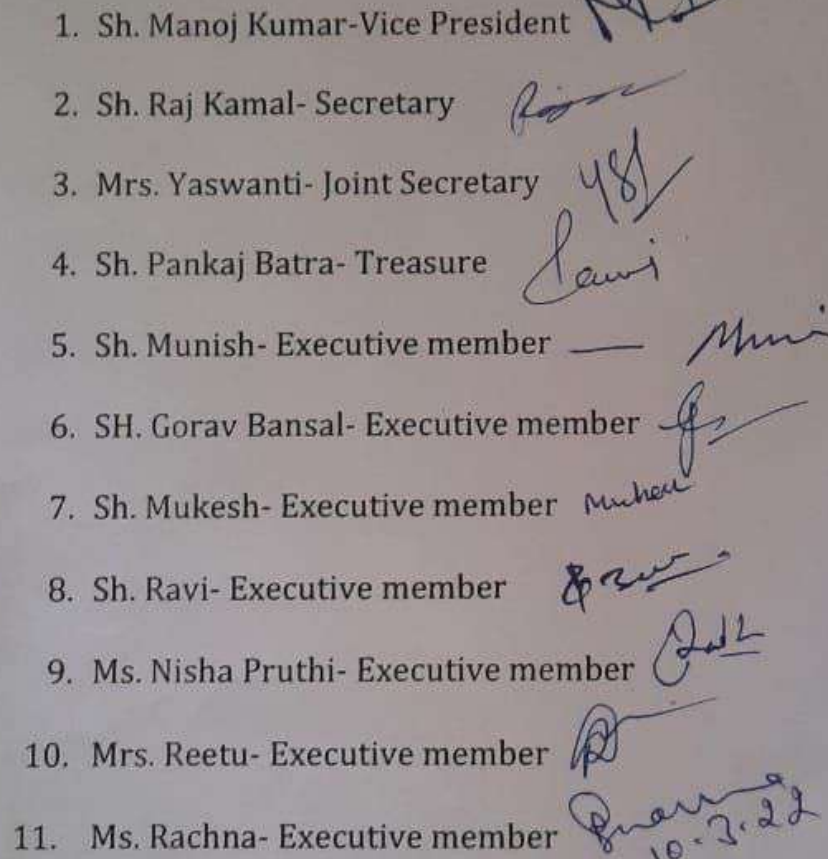 1. Sh. Manoj Kumar-Vice President
2. Sh. Raj Kamal- Secretary
3. Mrs. Yaswanti- Joint Secretary
4. Sh. Pankaj Batra- Treasure
5. Sh. Munish- Executive member —
6. SH. Gorav Bansal- Executive member
7. Sh. Mukesh- Executive member
8. Sh. Ravi- Executive member
9. Ms. Nisha Pruthi- Executive member
10. Mrs. Reetu- Executive member
11. Ms. Rachna- Executive member
10.3.22